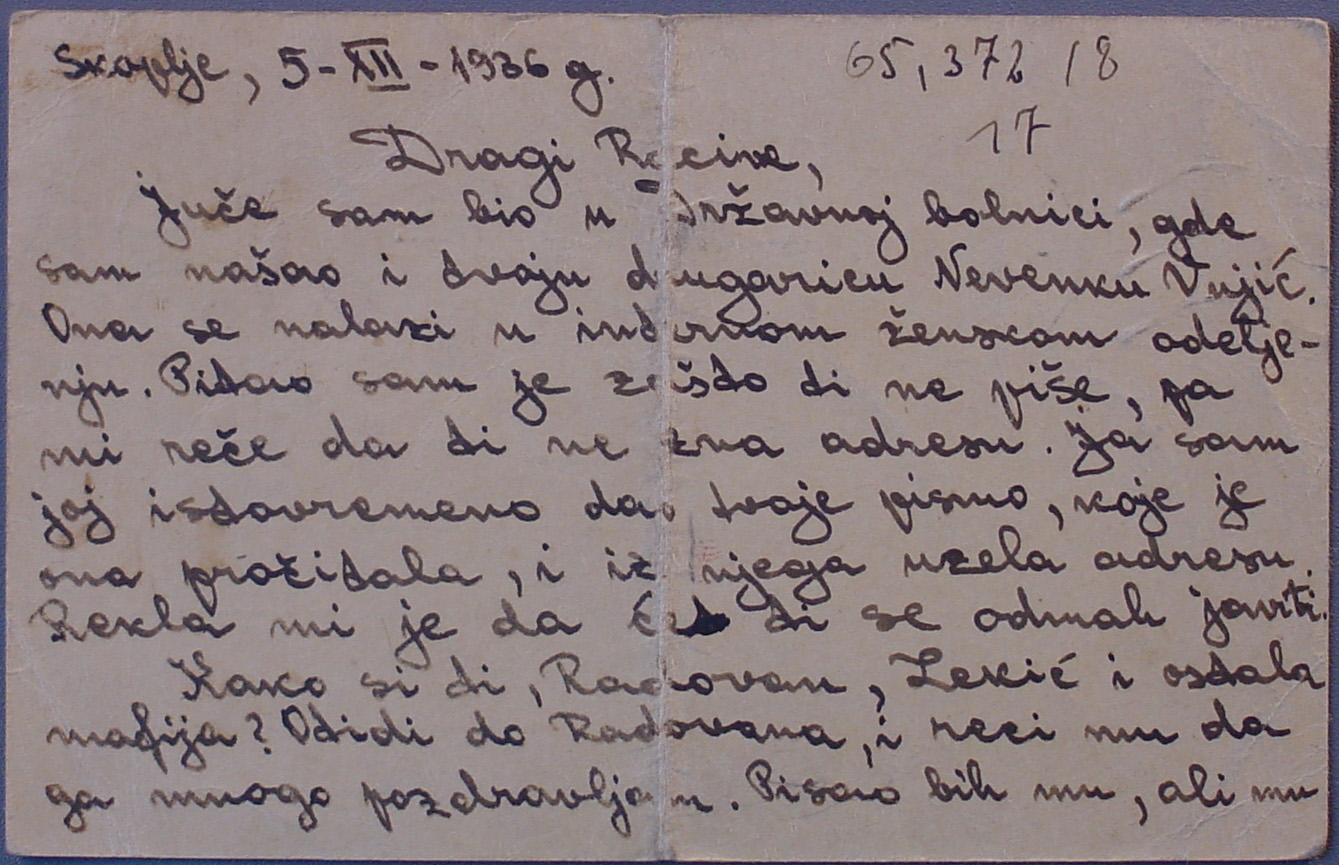 Skoplje, 5-XII-1936 g.
65,372 / 8
17
Dragi Racine,
Juče sam bio u državnoj bolnici, gde
sam našao i tvoju drugaricu Nevenku Vujić.
Ona se nalazi u internom ženskom odelje-
nju. Pitao sam je zašto ti ne piše, pa
mi reče da ti ne zna adresu. Ja sam
joj istovremeno dao tvoje pismo, koje je
ona pročitala, i iz njega uzela adresu.
Rekla mi je da će ti se odmah javiti.
Kako si ti, Radovan, Lekić i ostala
mafija? Otidi do Radovana, i reci mu da
ga mnogo pozdravljam. Pisao bih mu, ali mu